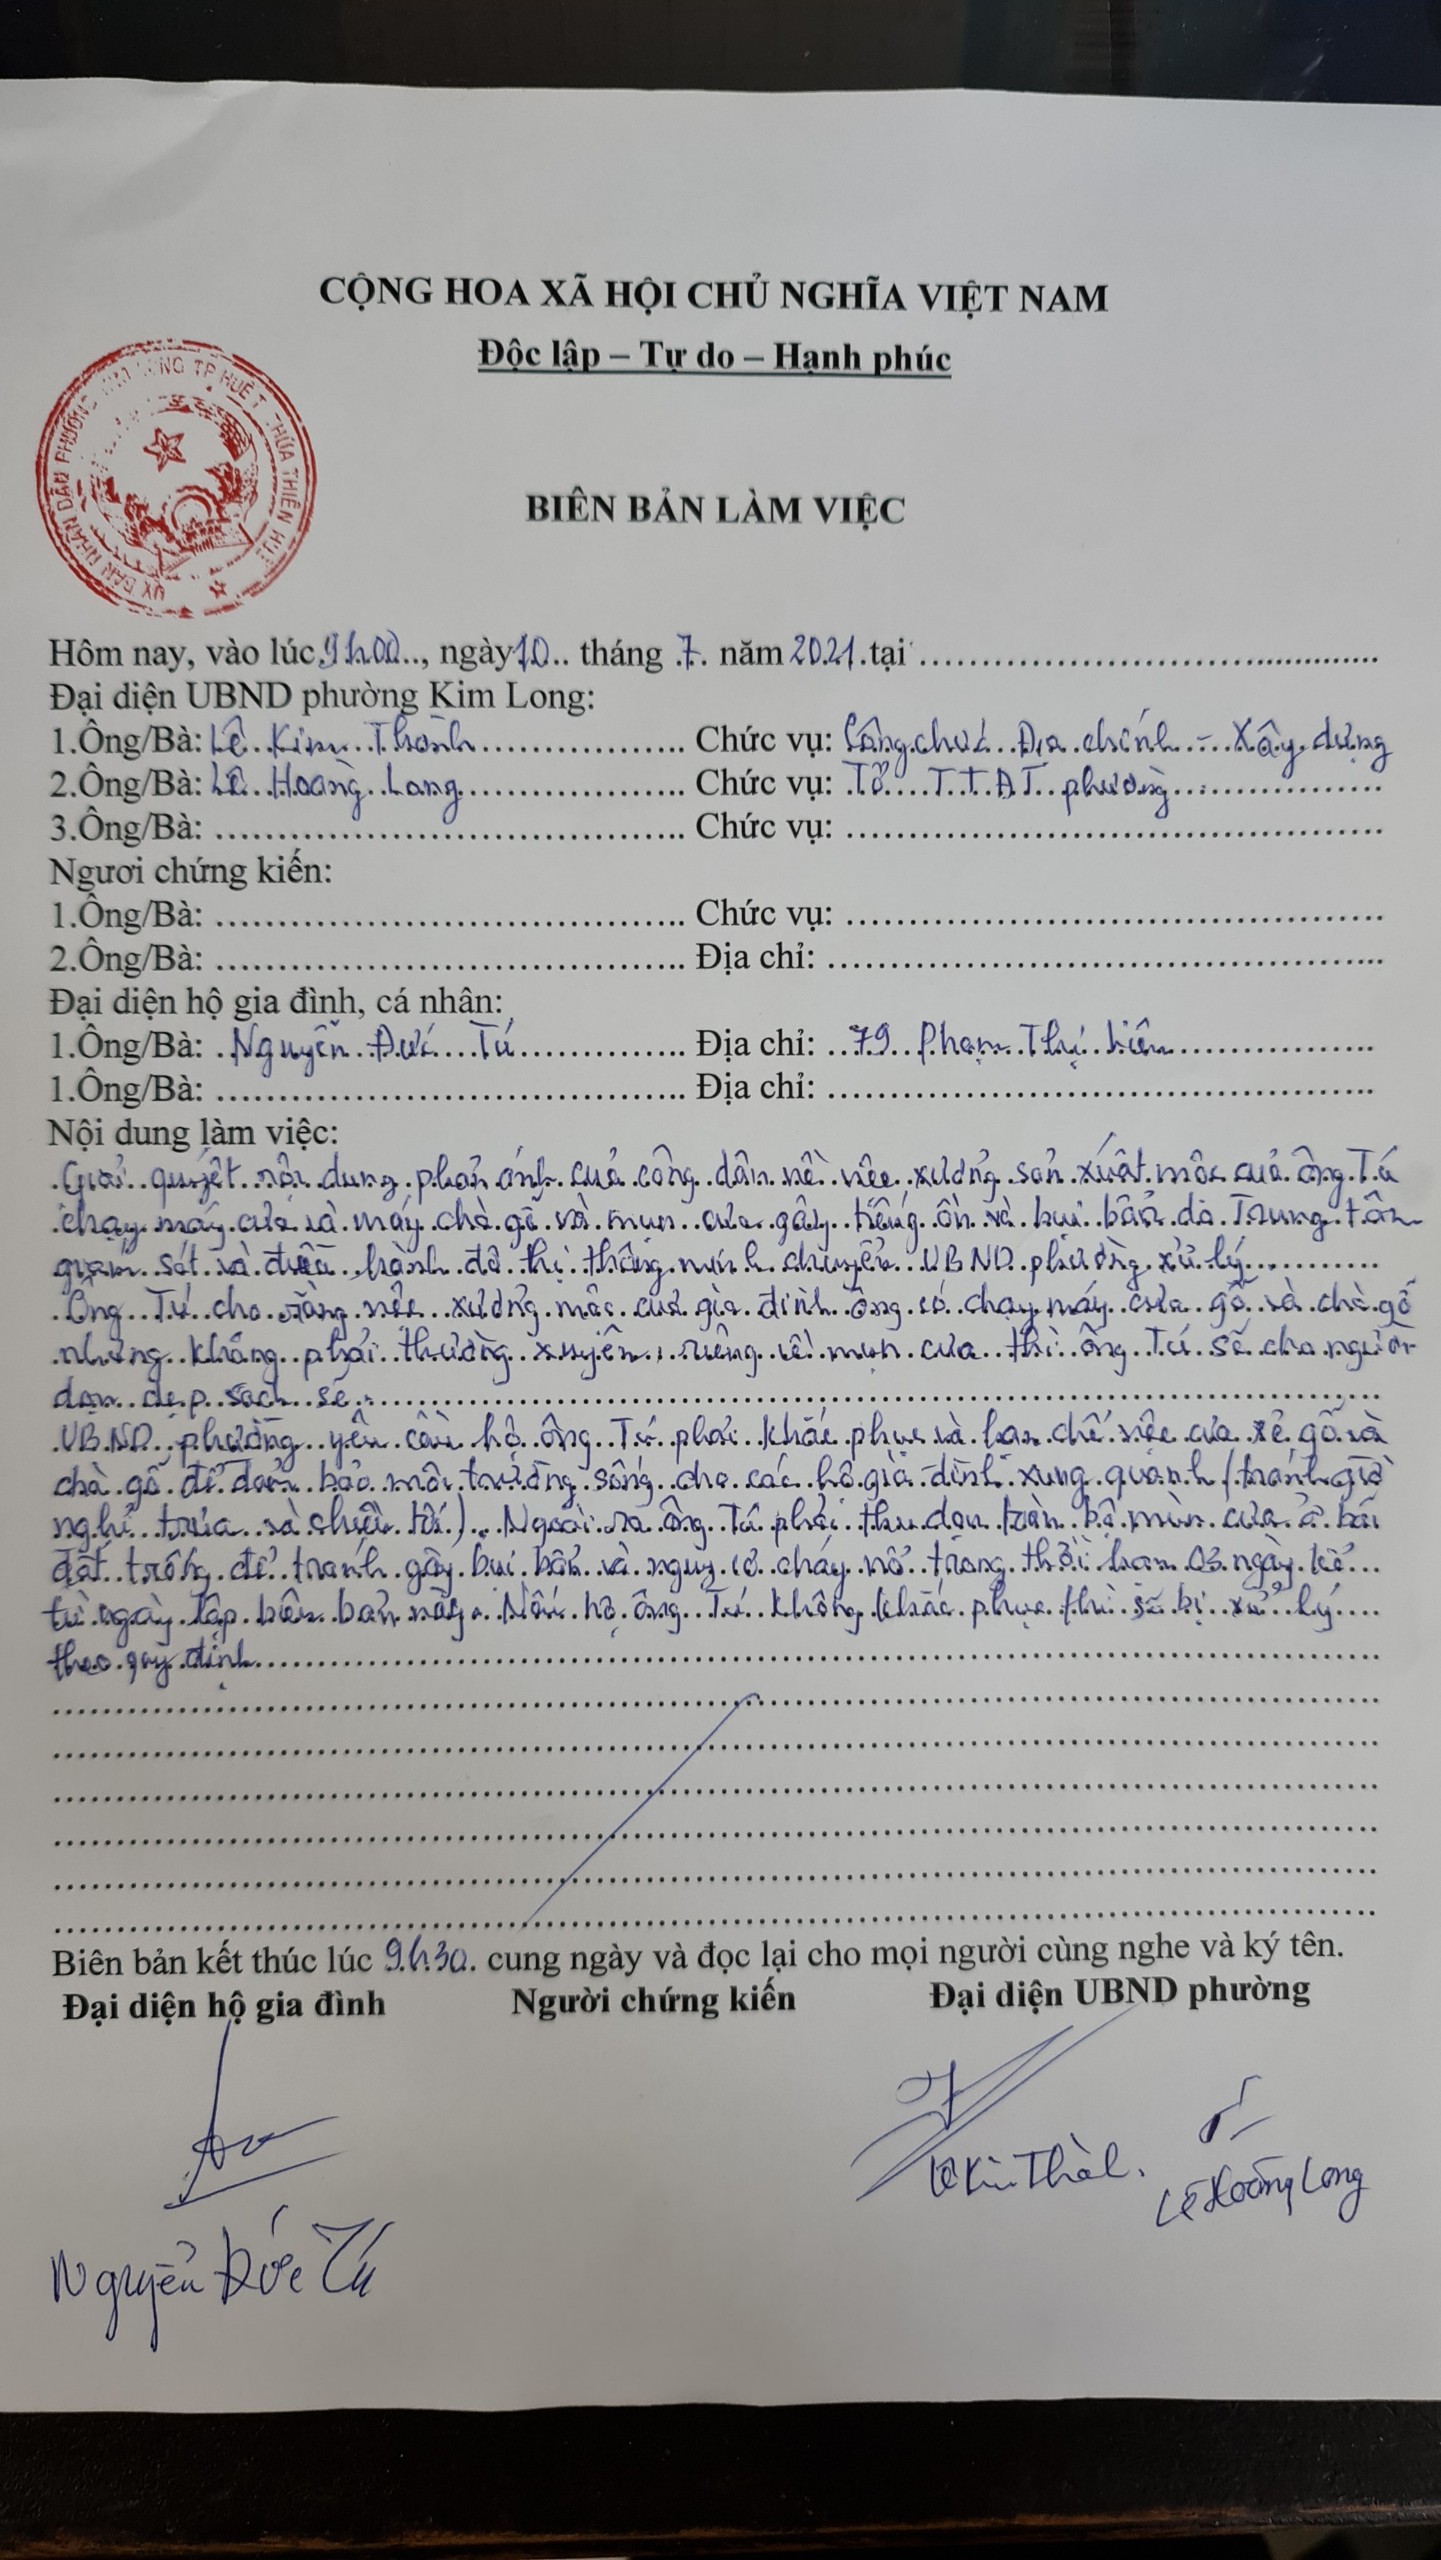 CỘNG HOA XÃ HỘI CHỦ NGHĨA VIỆT NAM
Độc lập – Tự do – Hạnh phúc
ỦY BAN NHÂN DÂN PHƯỜNG KIM LONG TP HUẾ T. THỪA THIÊN HUẾ
BIÊN BẢN LÀM VIỆC
Hôm nay, vào lúc 9h00.., ngày 10.. tháng .7. năm 2021.tại ................
Đại diện UBND phường Kim Long:
1.Ông/Bà: Lê Kim Thành ................ Chức vụ: Công chức Địa chính - Xây dựng
2.Ông/Bà: Lê Hoàng Long ................ Chức vụ: Tổ TTĐT phường ................
3.Ông/Bà: ................ Chức vụ: ................
Ngươi chứng kiến:
1.Ông/Bà: ................ Chức vụ: ................
2.Ông/Bà: ................ Địa chỉ: ................
Đại diện hộ gia đình, cá nhân:
1.Ông/Bà: Nguyễn Đức Tú ................ Địa chỉ: 79 Phạm Thị Liên ................
1.Ông/Bà: ................ Địa chỉ: ................
Nội dung làm việc:
Giải quyết nội dung phản ánh của công dân về việc xưởng sản xuất mộc của ông Tú
chạy máy cưa và máy chà gỗ và mùn cưa gây tiếng ồn và bụi bẩn do Trung tâm
giám sát và điều hành đô thị thông minh chuyển UBND phường xử lý
Ông Tú cho rằng việc xưởng mộc của gia đình ông có chạy máy cưa gỗ và chà gỗ
nhưng không phải thường xuyên, riêng về mùn cưa thì ông Tú sẽ cho người
dọn dẹp sạch sẽ.
UBND phường yêu cầu hộ ông Tú phải khắc phục và hạn chế việc cưa xẻ gỗ và
chà gỗ để đảm bảo môi trường sống cho các hộ gia đình xung quanh (tránh giờ
nghỉ trưa và chiều tối). Ngoài ra ông Tú phải thu dọn toàn bộ mùn cưa ở bãi
đất trống để tránh gây bụi bẩn và nguy cơ cháy nổ trong thời hạn 03 ngày kể
từ ngày lập biên bản này. Nếu hộ ông Tú không khắc phục thì sẽ bị xử lý
theo quy định
Biên bản kết thúc lúc 9h30. cung ngày và đọc lại cho mọi người cùng nghe và ký tên.
Đại diện hộ gia đình Người chứng kiến Đại diện UBND phường
Lê Kim Thành. Lê Hoàng Long
Nguyễn Đức Tú